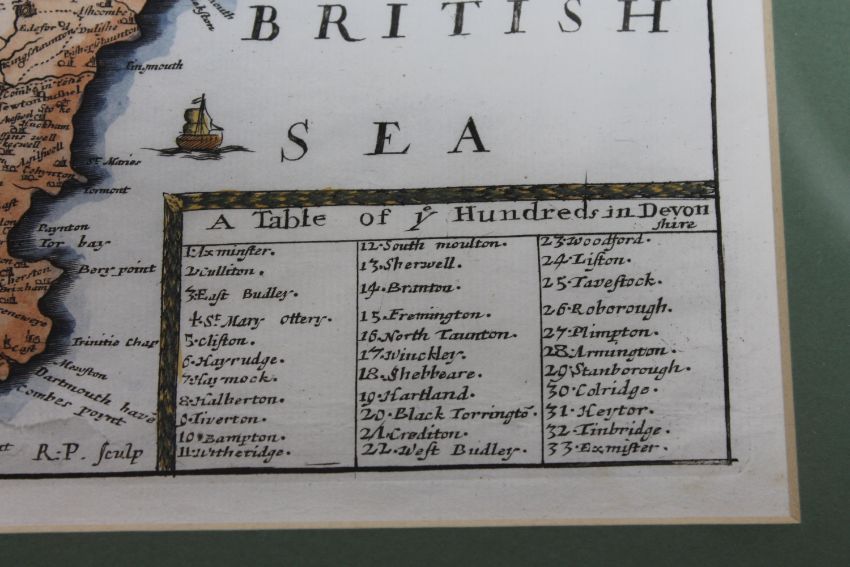 BRITISH
SEA
Tingmouth
St Maries
Tormont
Paynton
Tor bay
Bery point
Trinitie Chap
Mewston
Dartmouth have
Combes point
R.P. sculp
A Table of yͤ Hundreds in Devon
shire
1. Axminster.
2. Culliton.
3. East Budley.
4. St Mary ottery.
5. Cliston.
6. Hayrudge.
7. Haymock.
8. Halberton.
9. Tiverton.
10. Bampton.
11. Witheridge.
12. South moulton.
13. Sherwell.
14. Branton.
15. Fremington.
16. North Taunton.
17. Winckley.
18. Shebbeare.
19. Hartland.
20. Black Torringtō.
21. Crediton.
22. West Budley.
23. Woodford.
24. Liston.
25. Tavestock.
26. Roborough.
27. Plimpton.
28. Armington.
29. Stanborough.
30. Colridge.
31. Heytor.
32. Tinbridge.
33. Exmister.